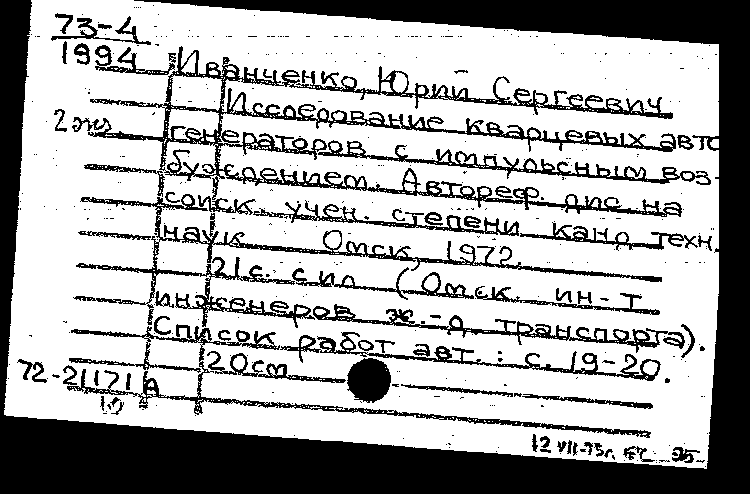 73-4
1994
Иванченко, Юрий Сергеевич
Исследование кварцевых авто
2 экз.
генераторов с импульсным воз-
буждением. Автореф. дис на
соиск. учен. степени канд техн.
наук Омск, 1972.
21 с. с ил (Омск. ин-т
инженеров ж.-д транспорта).
Список работ авт.: с. 19-20.
20 см
72-21171А
10
12 VII-75г.